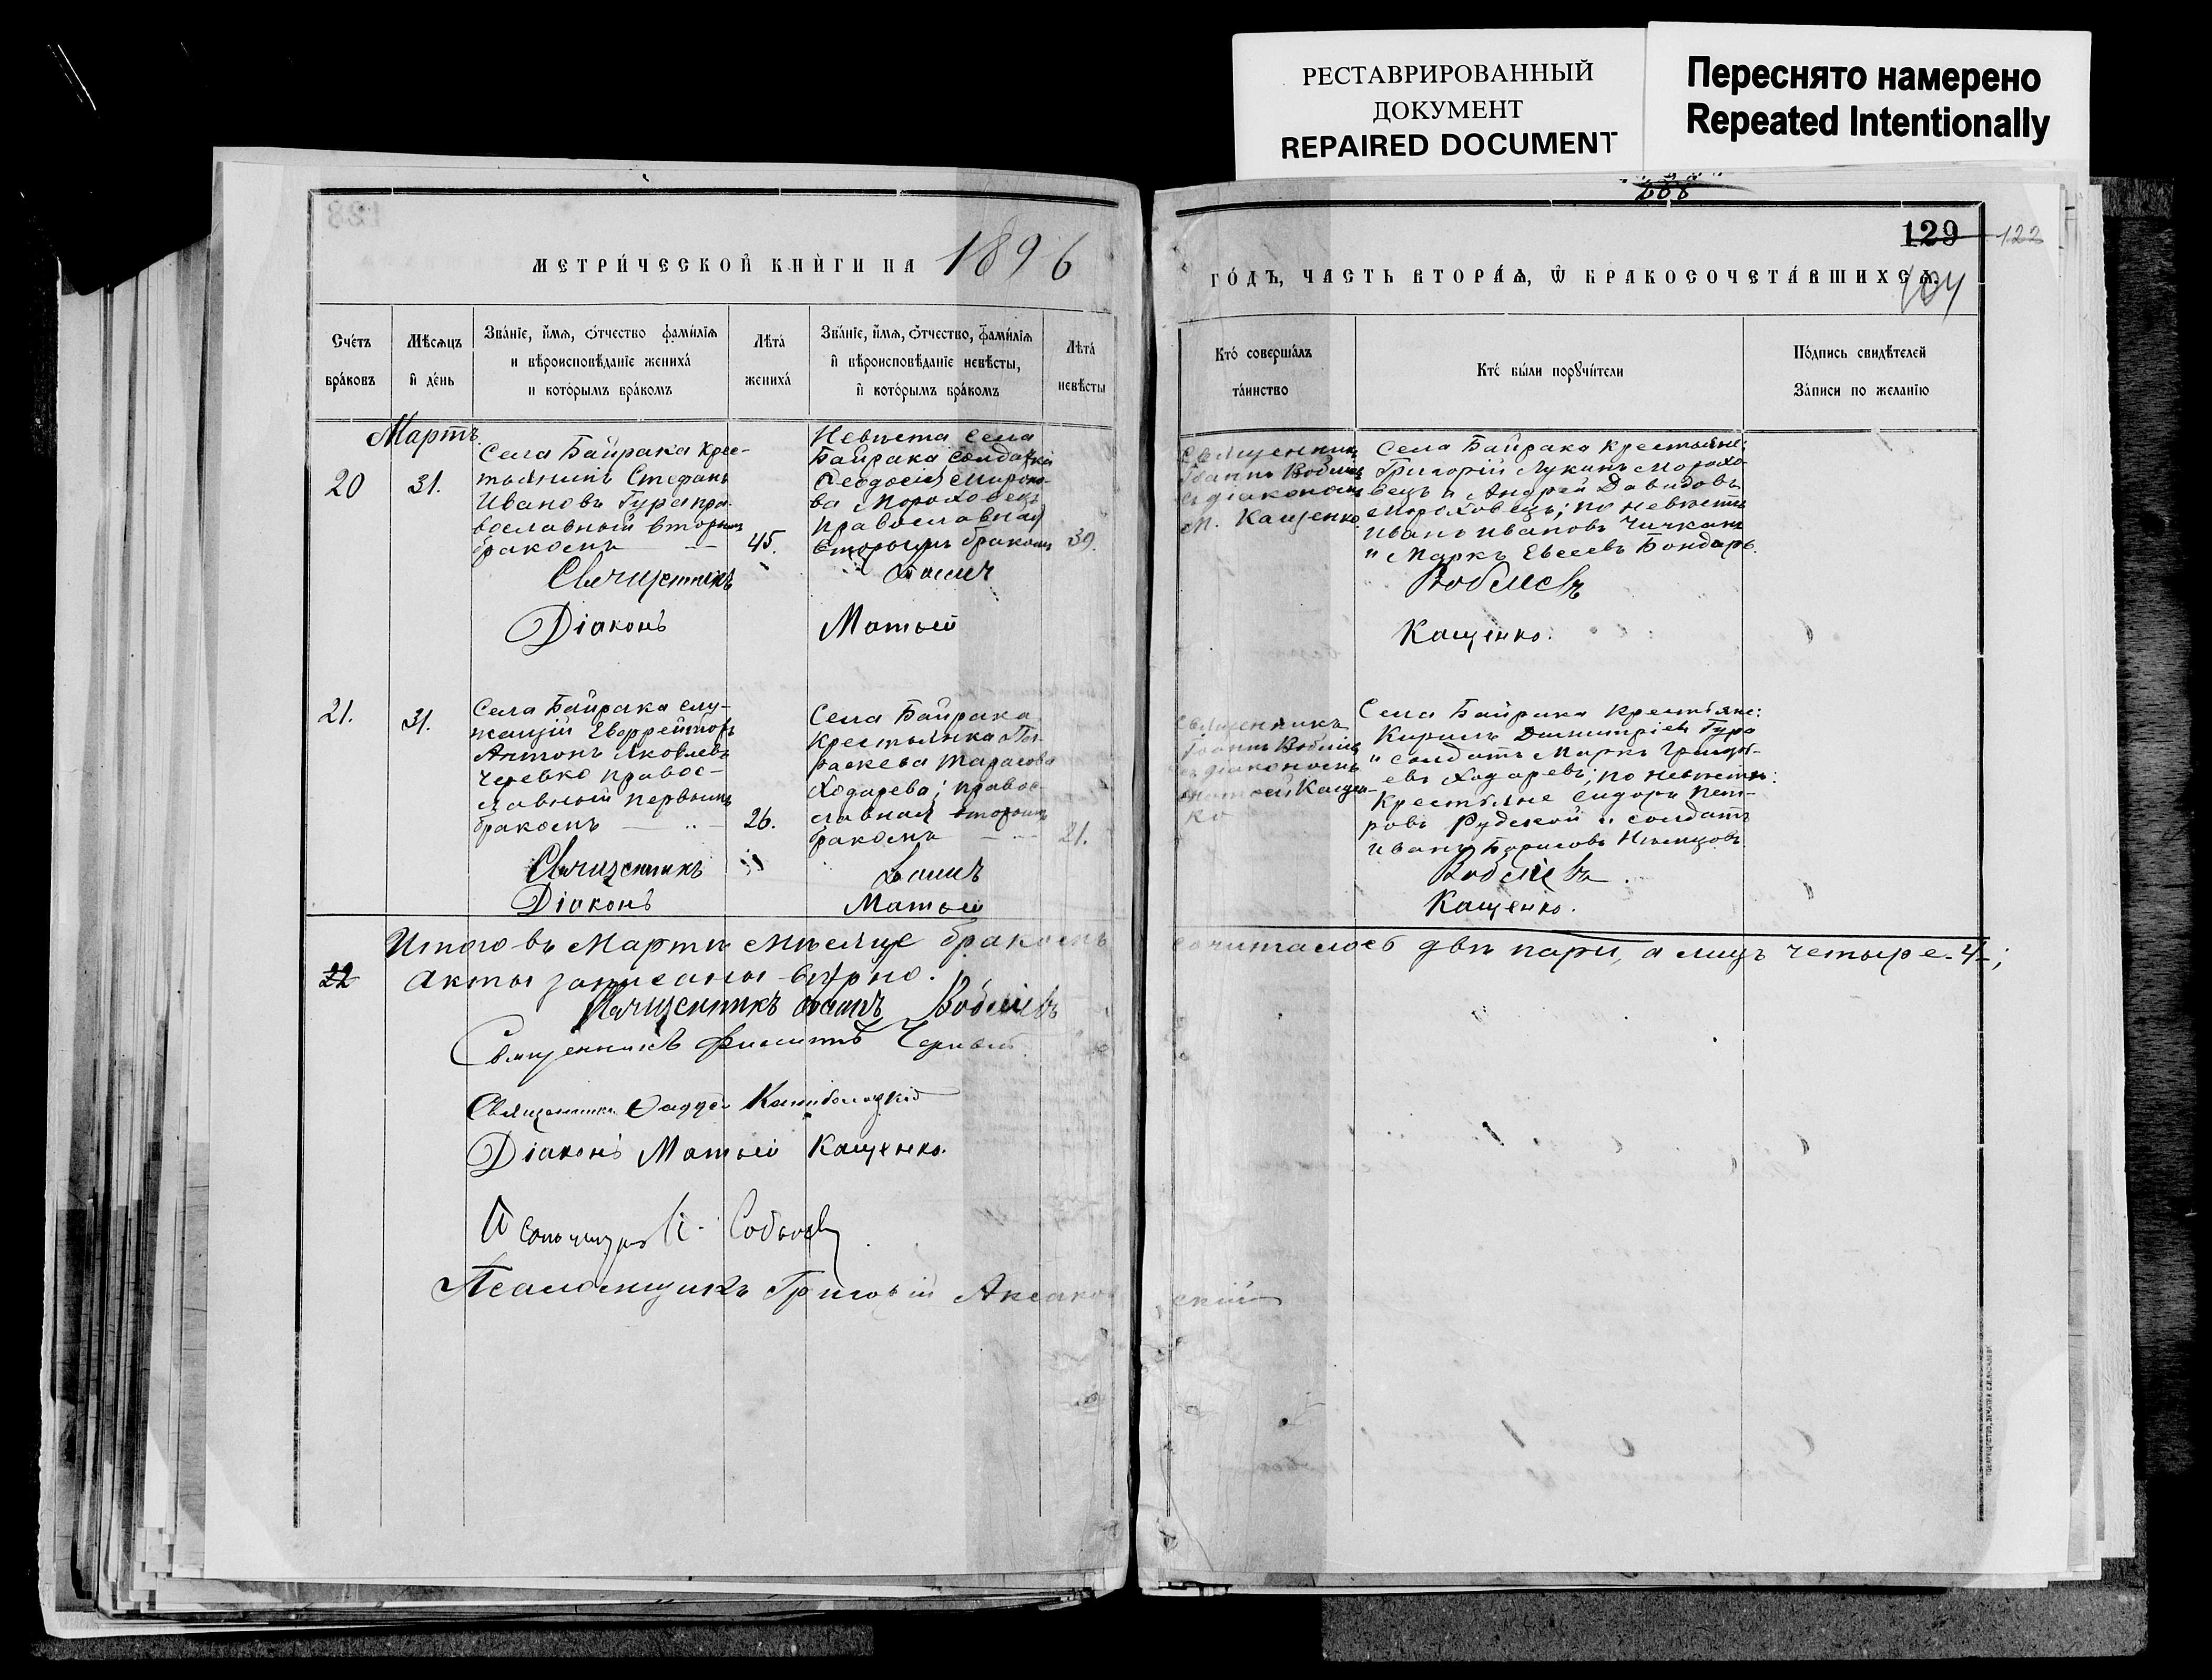 РЕСТАВРИРОВАННЫЙ
ДОКУМЕНТ
REPAIRED DOCUMENT
Переснято намерено
Repeated Intentionally
129 122
104
МЕТРИ́ЧЕСКОЙ КНИ́ГИ НА 1896
ГО́ДЪ, ЧАСТЬ ВТОРА́Ѧ, Ѽ БРАКОСОЧЕТА́ВШИХСѦ.
Сче́тъ
бра́ковъ
Мѣ́сѧцъ
и҆ де́нь
Зва́нїе, и҆́мѧ, ѻ҆́тчество фами́лїѧ
и вѣроисповѣ́данїе жениха́
и кото́рымъ бра́комъ
Лѣта́
жениха́
Зва́нїе, и҆́мѧ, ѻ҆́тчество, фами́лїѧ
и҆ вѣроисповѣ́данїе невѣ́сты,
и҆ кото́рымъ бра́комъ
Лѣта́
невѣ́сты
Кто́ соверша́лъ
та́инство
Кто́ бы́ли порꙋчи́тели
По́дпись свидѣ́телей
За́писи по жела́нїю
Мартъ.
20
31.
Села Байрака крес-
тьянинъ Стефанъ
Ивановъ Гура пра-
вославный вторымъ
бракомъ
45.
Невѣста села
Байрака солдатка
Ѳеодосія Мироно-
ва Мороховецъ
православная
вторымъ бракомъ
39.
Священникъ
Іоаннъ Воблый
съ діакономъ
М. Кащенко
Села Байрака крестьяне:
Григорій Лукинъ Морохо-
вецъ и Андрей Давидовъ
Мороховецъ; по невѣстѣ
Иванъ Ивановъ Чичканъ
и Маркъ Евсеевъ Бондарь.
Священникъ Іоаннъ
Діаконъ Матѳей Кащенко.
21.
31.
Села Байрака слу-
жащій Ефрейторъ
Антонъ Яковлевъ
Черевко правос-
лавный первымъ
бракомъ
26.
Села Байрака
крестьянка Па-
раскева Тарасова
Ходарева; правос-
лавная вторымъ
бракомъ
21.
Священникъ
Іоаннъ Воблый
съ діакономъ
Матѳей Кащен-
ко
Села Байрака крестьяне:
Кирилъ Димитріевъ Гура
и солдатъ Маркъ
Ходаревъ; по невѣстѣ:
крестьяне Сидоръ Пет-
ровъ Рудской и солдатъ
Иванъ Борисовъ Нѣмцовъ
Священникъ Іоаннъ
Діаконъ Матѳей Кащенко.
Итого въ Мартѣ мѣсяцѣ бракомъ сочиталось двѣ пары, а лицъ четыре-4-;
22
Акты записаны вѣрно.
Священникъ Іоаннъ
Священникъ Филиппъ
Священникъ Фаддей
Діаконъ Матѳей Кащенко.
Псаломщикъ
Псаломщикъ Григорій Аксаковскій